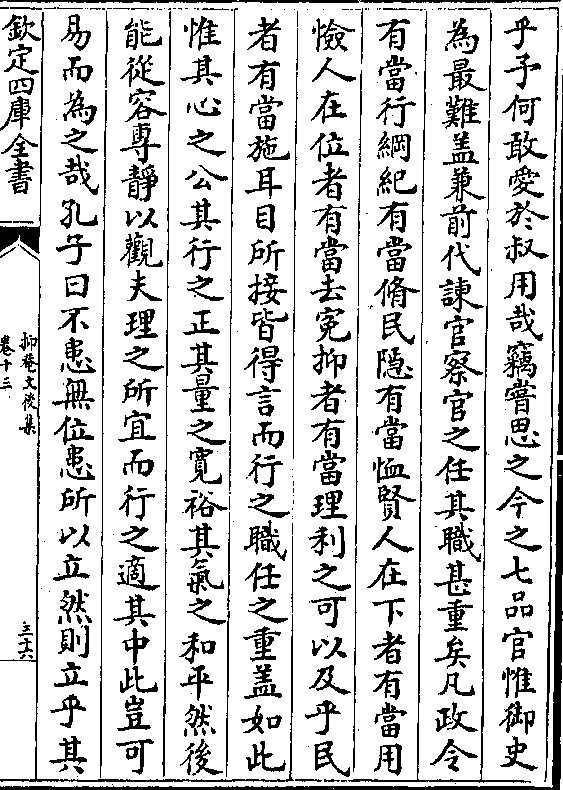 乎予何敢愛於叔用哉竊嘗思之今之七品官惟御史
為最難盖兼前代諫官察官之任其職甚重矣凡政令
有當行綱紀有當脩民隠有當恤賢人在下者有當用
憸人在位者有當去寃抑者有當理利之可以及乎民
者有當施耳目所接皆得言而行之職任之重盖如此
惟其心之公其行之正其量之寛裕其氣之和平然後
能從容専靜以觀夫理之所宜而行之適其中此豈可
易而為之哉孔子曰不患無位患所以立然則立乎其
欽定四庫全書
抑菴文後集
卷十三
三十六